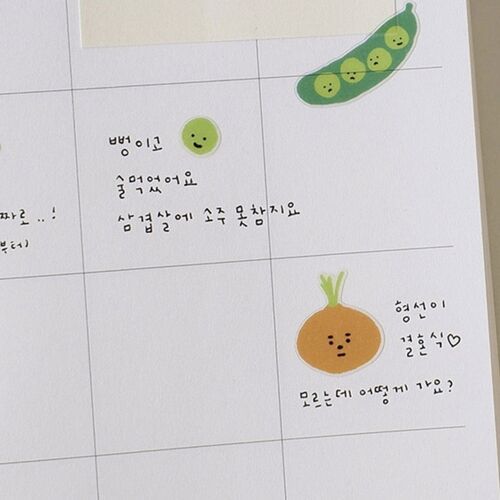 뻥이고
술먹었어요
삼겹살에 소주 못참지요
짜로..!
부터)
형선이
결혼식♡
모르는데 어떻게 가요?